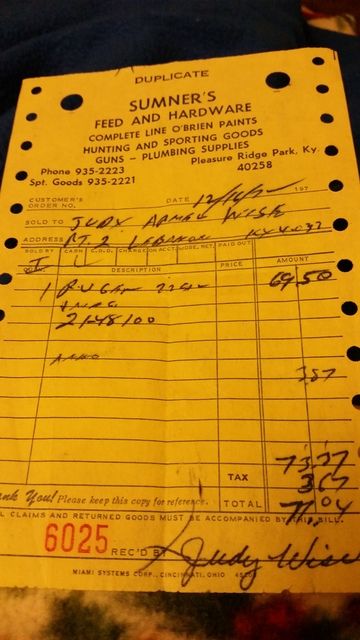 DUPLICATE
SUMNER'S
FEED AND HARDWARE
COMPLETE LINE O'BRIEN PAINTS
HUNTING AND SPORTING GOODS
GUNS - PLUMBING SUPPLIES
Phone 935-2223 Pleasure Ridge Park, Ky.
Spt. Goods 935-2221 40258
CUSTOMER'S
ORDER NO. DATE 197
SOLD TO JUDY WISE
ADDRESS RT. 2 LEBANON
SOLD BY CASH C.O.D. CHARGE ON ACCT. MDSE. RET. PAID OUT
DESCRIPTION PRICE AMOUNT
1 RUGER 69.50
2148100
AMMO 387
73.37
TAX 3.67
TOTAL 77.04
ank You! Please keep this copy for reference.
L CLAIMS AND RETURNED GOODS MUST BE ACCOMPANIED BY THIS BILL.
6025 REC'D BY Judy Wise
MIAMI SYSTEMS CORP., CINCINNATI, OHIO